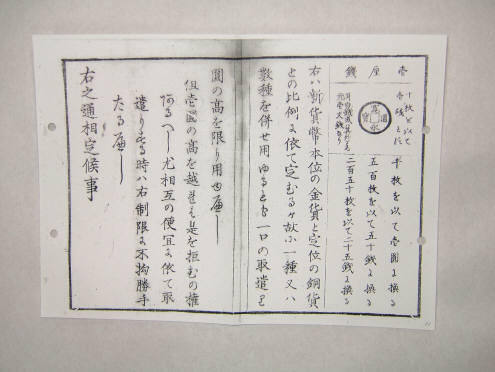 壱厘銭
十枚を以て
壱銭とす
千枚を以て壱圓に換る
寛永通寳
五百枚を以て五十銭に換る
元壱文銭なり
二百五十枚を以て二十五銭に換る
右ハ新貨幣本位の金貨と定位の銅貨
との比例に依て定むるヶ故に一種又ハ
数種を併せ用ゆるとも一口の取遣り
圓の高を限り用ゆ可し
但壱圓の高を越是を拒むの権
あるへし尤相互の便宜に依て取
遣りする時ハ右制限に不拘勝手
たる可し
右之通相定候事